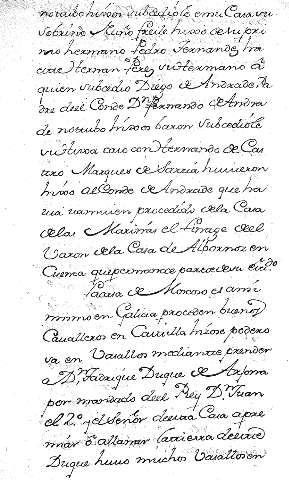 no tubo hixos subcediole en su Casa su
sobrino Nuño freile hixo de su pri
mo hermano Pedro Fernandez tra
Hernan Perez su Hermano a
quien subcedio Diego de Andrade Pa
dre del Conde Dn. fernando de Andra
de no tubo hixos baron subcediole
su hixa caso con Hernando de Cas
tro Marques de Sarria huuieron
hixo al Conde de Andrade que ha
procedido de la Casa
de las Mariñas el linage del
Varon de la Casa de Albornoz en
Cuenca que permanece
la casa de Moscoso es ami
mismo en Galicia proceden buenos
Caualleros en Castilla hizose podero
sa en Vasallos mediante prender
a Dn. fadrique Duque de Arjona
por mandado del Rey Dn. Juan
el 2º y el Señor de esta Casa apre
miar o allanar la tierra de este
Duque huuo muchos Vasallos en